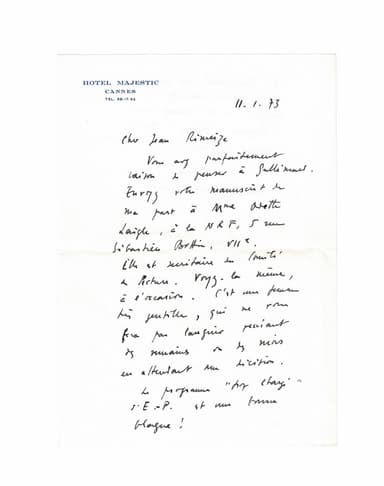 HOTEL MAJESTIC
CANNES
11.1.73
Cher Jean
Vous avez parfaitement
raison de penser à Gallimard.
Envoyez votre manuscrit de
ma part à Mme Odette
Laigle, à la NRF, 5 rue
Sébastien Bottin, VIIe.
Elle est secrétaire du Comité
de lecture. Voyez-la même,
à l'occasion. C'est une femme
très gentille, qui ne vous
fera pas languir pendant
des semaines ou des mois
en attendant une décision.
Le programme "trop chargé"
est une bonne
blague!